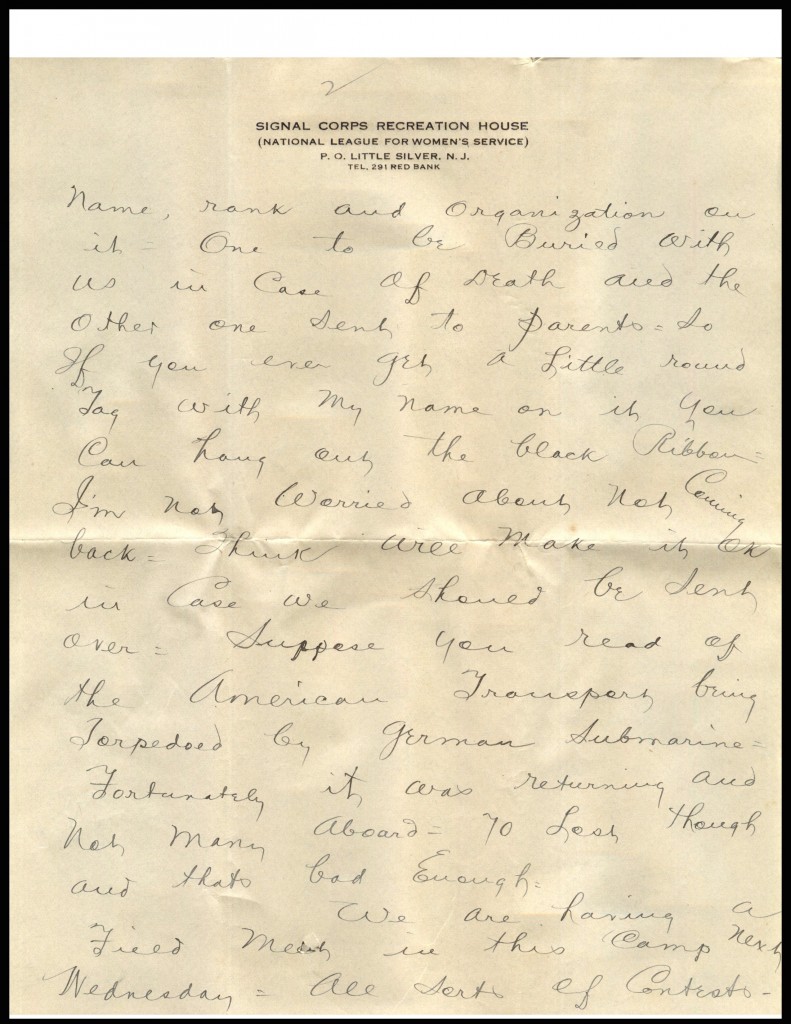 2
SIGNAL CORPS RECREATION HOUSE
(NATIONAL LEAGUE FOR WOMEN'S SERVICE)
P. O. LITTLE SILVER, N. J.
TEL. 291 RED BANK
Name, rank and Organization on
it = One to be Buried with
us in Case Of Death and the
Other one sent to parents = So
If you ever get a Little round
Tag with My name on it you
Can hang out the black Ribbon =
I'm not Worried About not Coming
back = Think will Make it Ok
in Case we should be sent
over = Suppose you read of
the American Transport being
Torpedoed by German Submarine =
Fortunately it was returning and
Not Many Aboard = 70 Lost though
and thats bad Enough =
We are having a
Field Meet in this Camp Next
Wednesday = All Sorts Of Contests -